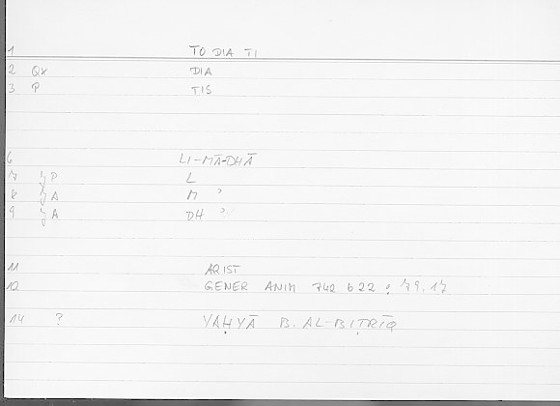 1 TO DIA TI
2 Qx DIA
3 P TIS
6 LI-MĀ-DHĀ
7 ʒ P L
8 ʒ A M ʾ
9 ʒ A DH ʾ
11 ARIST
12 GENER ANIM 742 b 22 : 79.17
14 ? YAḤYĀ B. AL-BIṬRĪQ